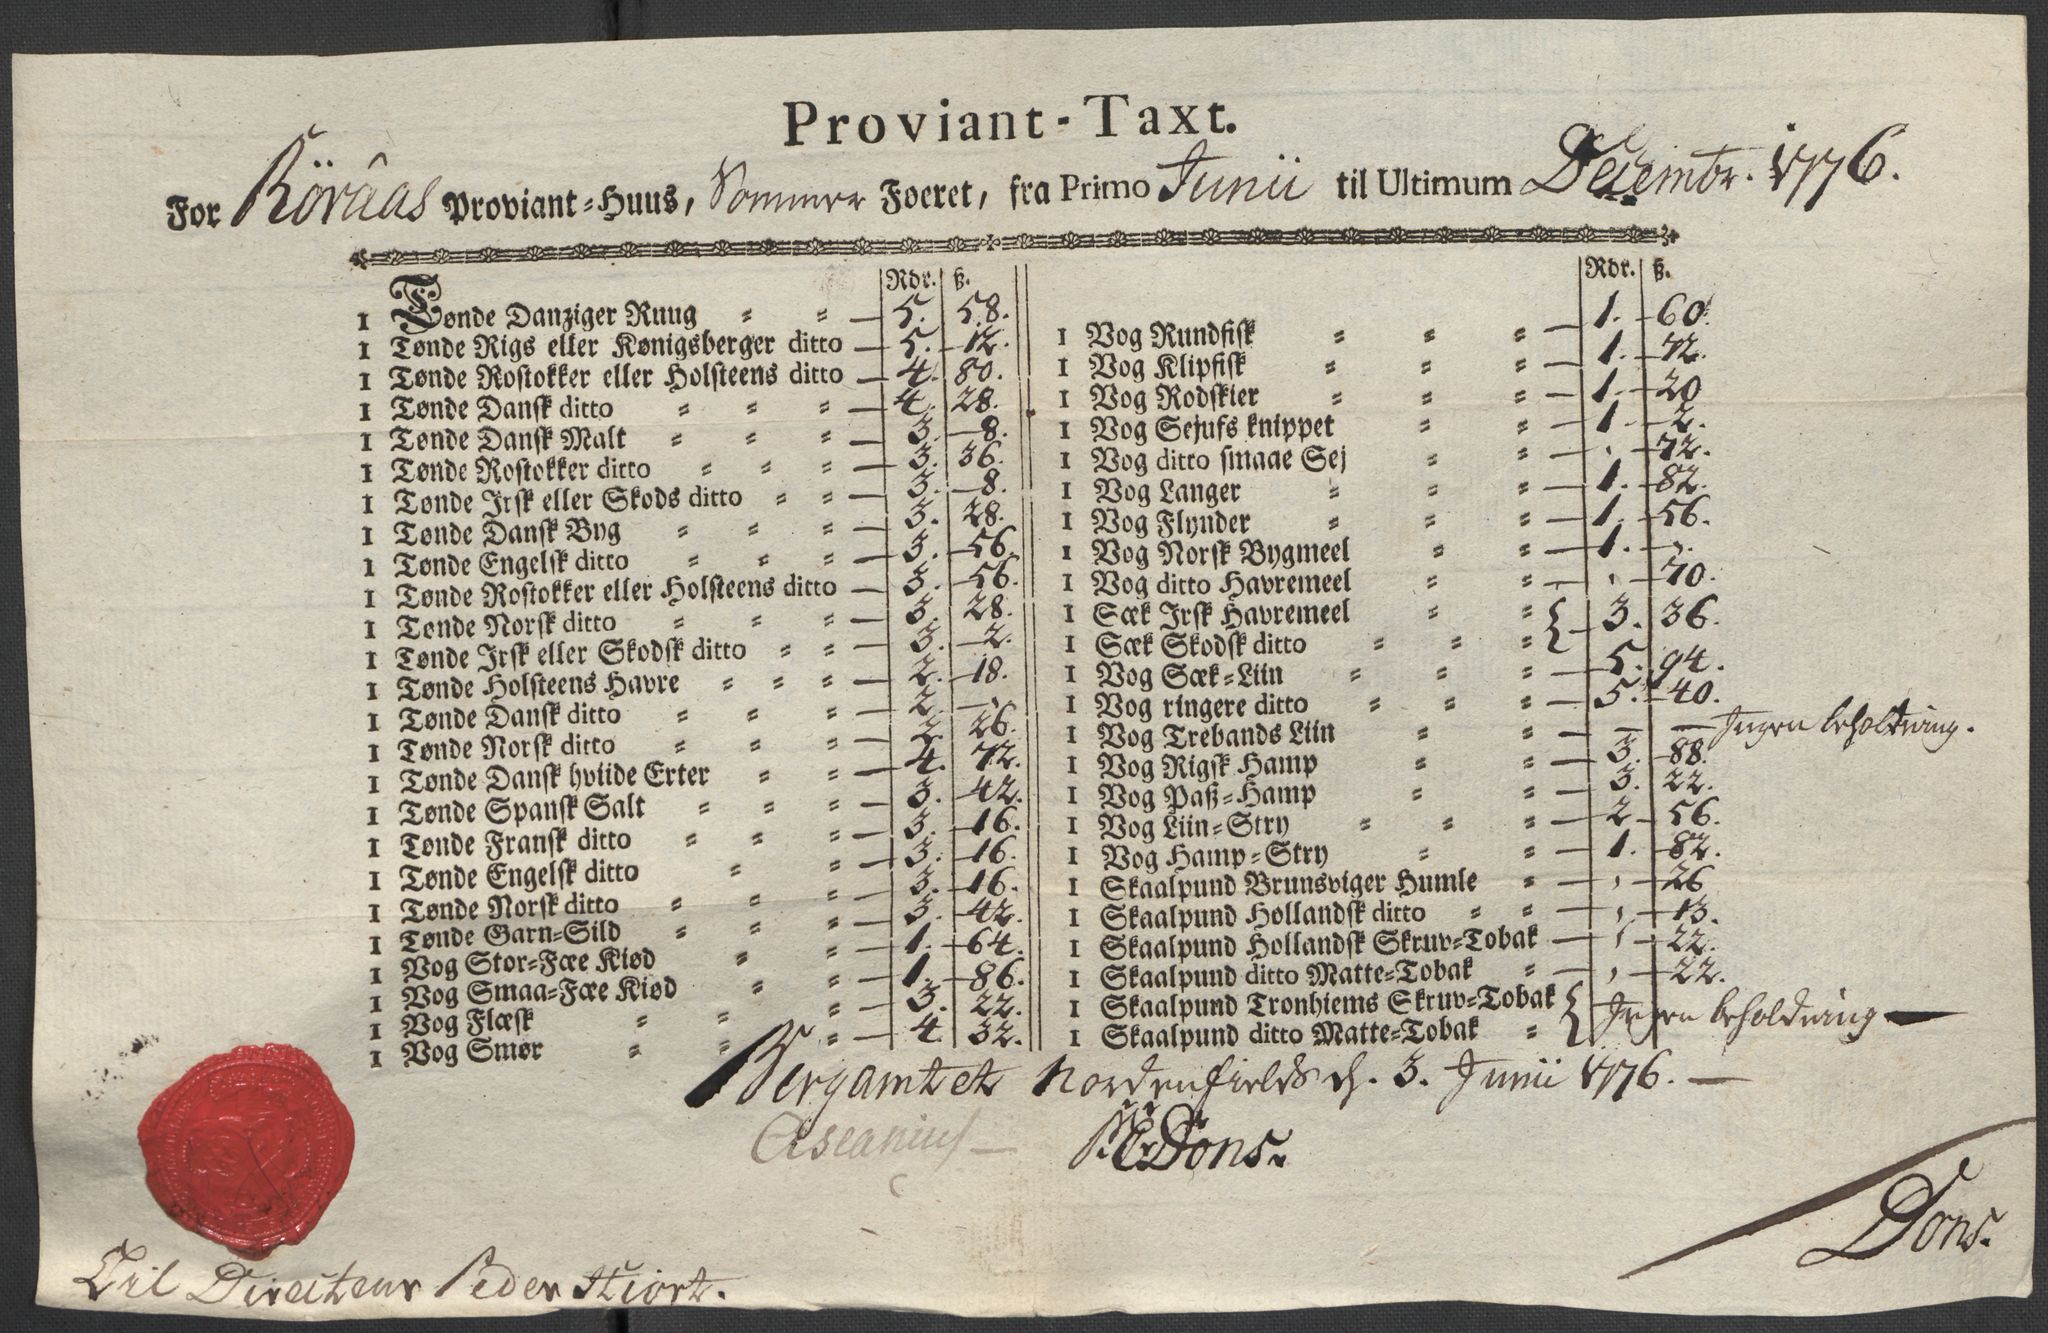 Proviant-Taxt.
For Röraas Proviant-Huus, Sommer Foeret, fra Primo Junii til Ultimum Decembr. 1776.
Rdr. ß.
1 Tønde Danziger Ruug 5. 58.
1 Tønde Rigs eller Kønigsberger ditto 5. 12.
1 Tønde Rostokker eller Holsteens ditto 4. 80.
1 Tønde Dansk ditto 4. 28.
1 Tønde Dansk Malt 3. 8.
1 Tønde Rostokker ditto 3. 36.
1 Tønde Irsk eller Skods ditto 3. 8.
1 Tønde Dansk Byg 3. 28.
1 Tønde Engelsk ditto 3. 56.
1 Tønde Rostokker eller Holsteens ditto 3. 56.
1 Tønde Norsk ditto 3. 28.
1 Tønde Irsk eller Skodsk ditto 3. 2.
1 Tønde Holsteens Havre 2. 18.
1 Tønde Dansk ditto 2. -.
1 Tønde Norsk ditto 2 26.
1 Tønde Dansk hviide Erter 4. 72.
1 Tønde Spansk Salt 3. 42.
1 Tønde Fransk ditto 3. 16.
1 Tønde Engelsk ditto 3. 16.
1 Tønde Norsk ditto 3. 16.
1 Tønde Garn-Sild 3. 42.
1 Vog Stor-Fæe Kiød 1. 64.
1 Vog Smaa-Fæe Kiød 1. 86.
1 Vog Flæsk 3. 22.
1 Vog Smør 4. 32.
Rdr. ß.
1 Vog Rundfisk 1. 60.
1 Vog Klipfisk 1. 72.
1 Vog Rodskier 1. 20
1 Vog Sejufs knippet 1. 2.
1 Vog ditto smaae Sej , 72.
1 Vog Langer 1. 82.
1 Vog Flynder 1. 56.
1 Vog Norsk Bygmeel 1. -.
1 Vog ditto Havremeel , 70.
1 Sæk Irsk Havremeel { 3. 36.
1 Sæk Skodsk ditto
1 Vog Sæk-Liin 5. 94.
1 Vog ringere ditto 5. 40.
1 Vog Trebands Liin — — Ingen beholdning.
1 Vog Rigsk Hamp 3. 88.
1 Vog Paß-Hamp 3. 22.
1 Vog Liin-Stry 2 56.
1 Vog Hamp-Stry 1. 82.
1 Skaalpund Brunsviger Humle , 26
1 Skaalpund Hollandsk ditto , 13.
1 Skaalpund Hollandsk Skruv-Tobak , 22.
1 Skaalpund ditto Matte-Tobak , 22.
1 Skaalpund Tronhiems Skruv-Tobak { Ingen beholdning —
1 Skaalpund ditto Matte-Tobak
Bergamtet Nordenfields d. 3. Junii 1776. —
Ascanius —
Dons.
Dons.
Til Directeur Peder Hiort.